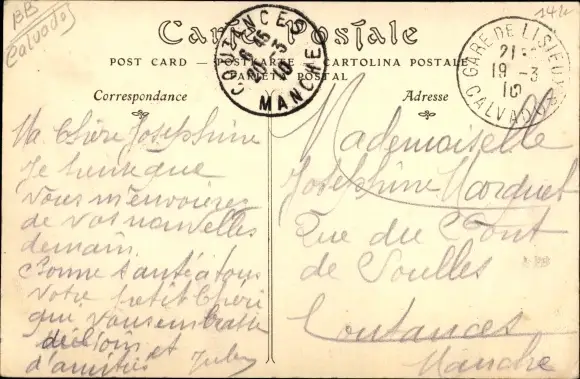 BB
Calvados
1412
Carte Postale
POST CARD — POSTKARTE — CARTOLINA POSTALE
POSTAL
COUTANCES
20-3
10
MANCHE
GARE DE LISIEUX
21
19-3
10
CALVADOS
Correspondance
Ma Chère Josephine
Je pense que
vous m'envoières
de vos nouvelles
demain.
Bonne santé a tous
Votre petit Chéri
que vous embrasse
de loin et
d'amitiés Jules
Adresse
Mademoiselle
Josephine Marquet
Rue du Pont
de Soulles
Coutances
Manche